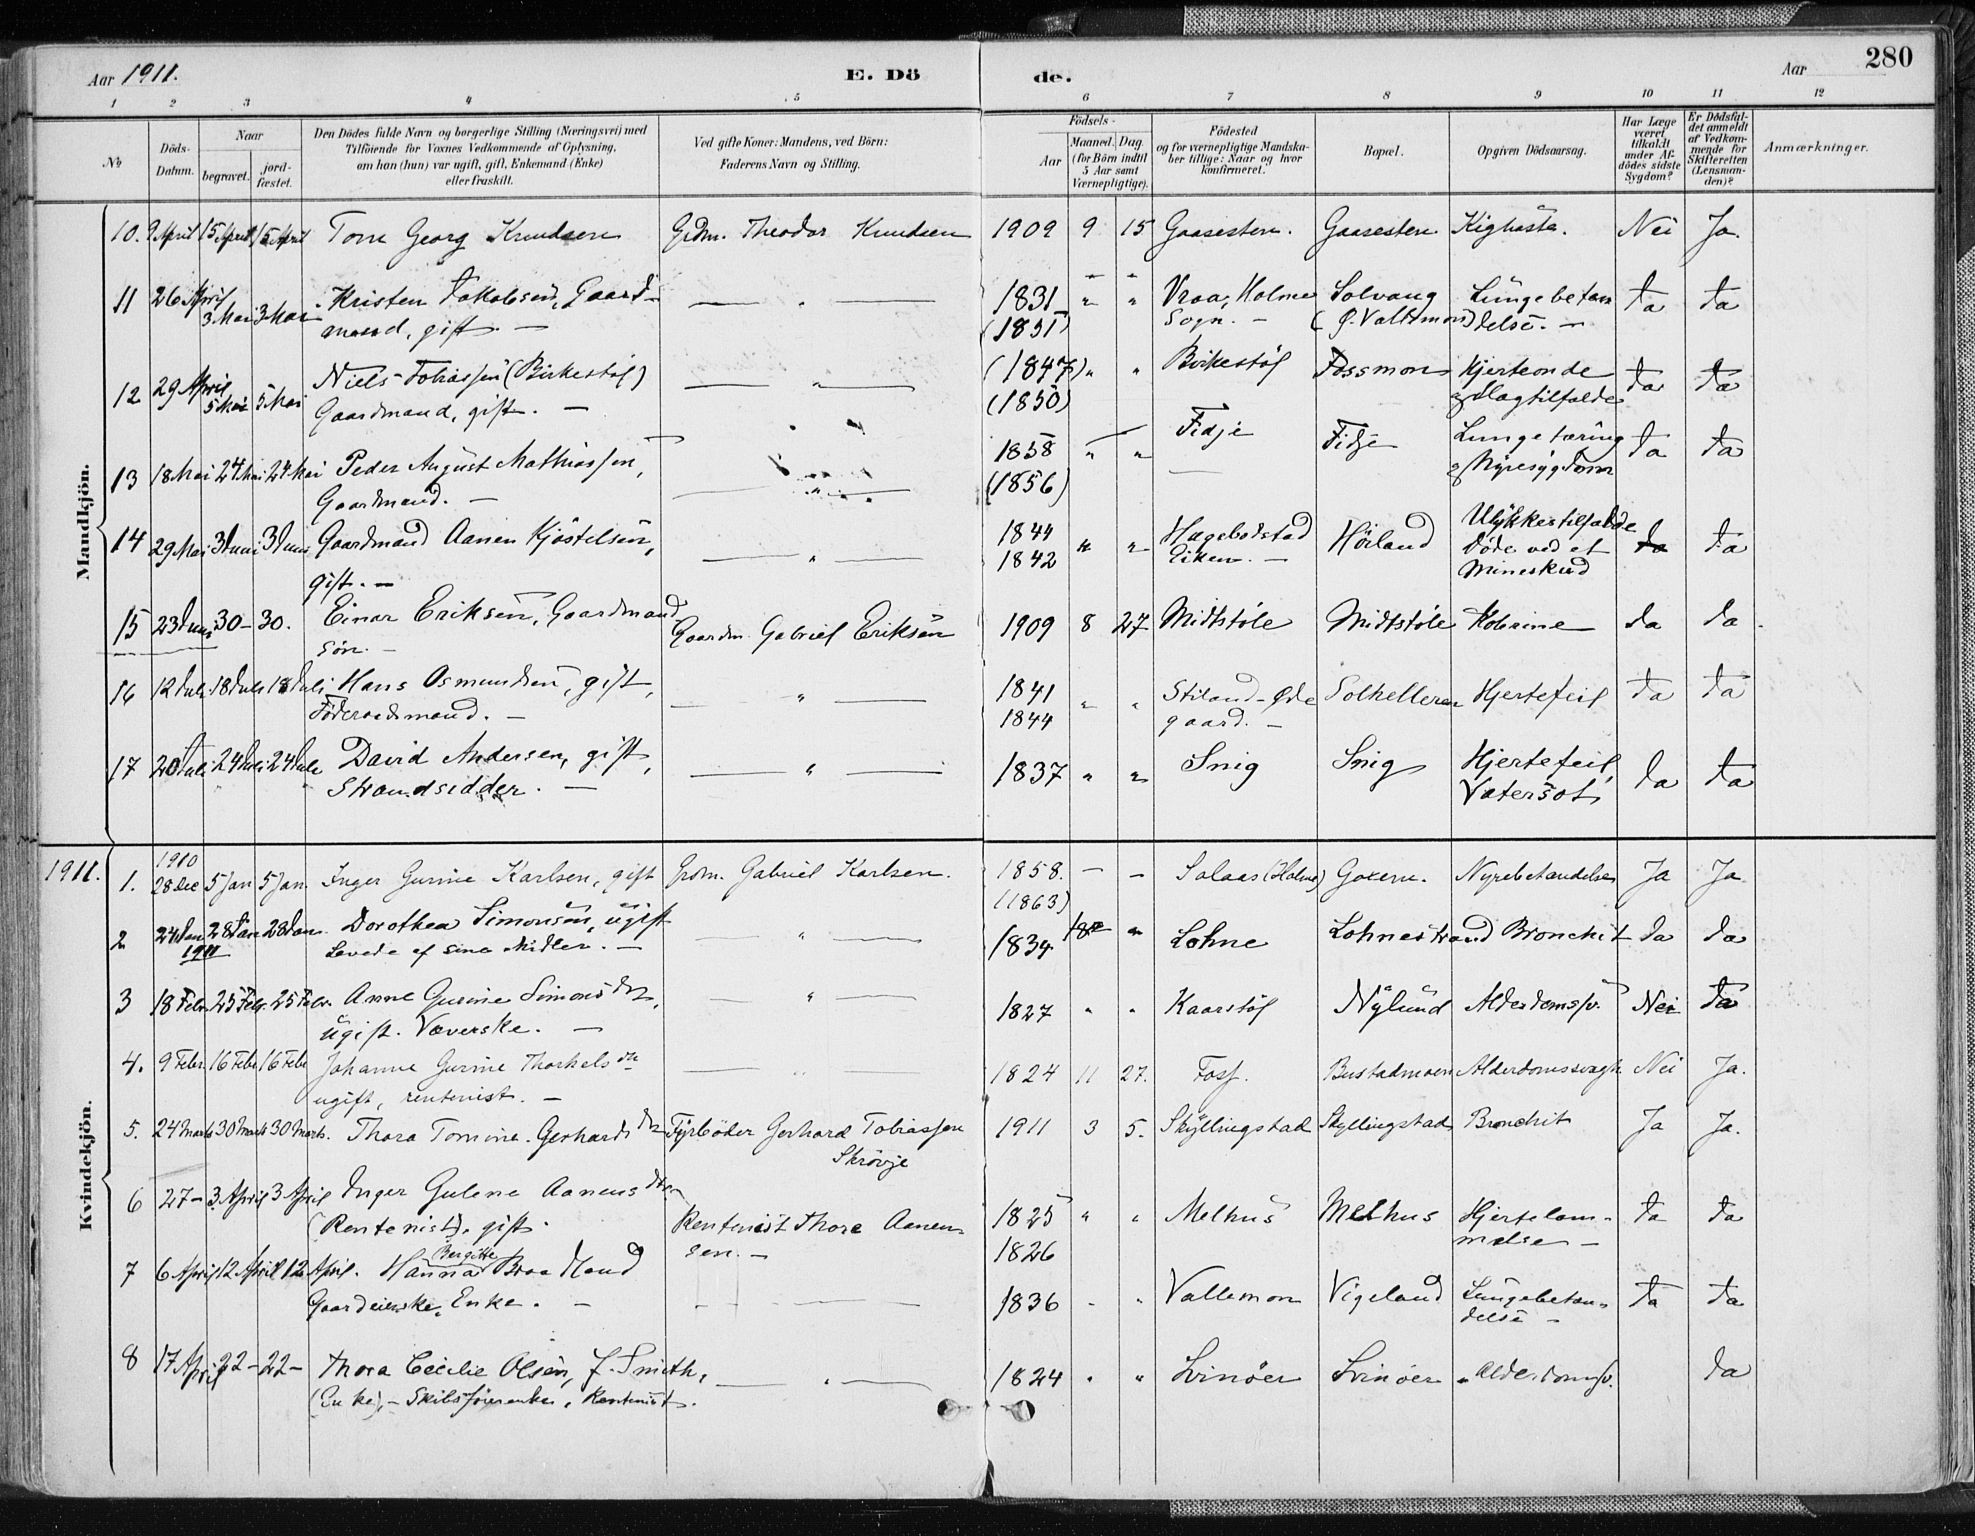 Aar 1911. E. Dö de. Aar 280
1 2 3 4 5 6 7 8 9 10 11 12
No Döds-Datum. Naar begravet. jord-fæstet. Den Dödes fulde Navn og borgerlige Stilling (Næringsvei) med Tilföiende for Voxnes Vedkommende af Oplysning, om han (hun) var ugift, gift, Enkemand (Enke) eller fraskilt. Ved gifte Koner: Mandens, ved Börn: Faderens Navn og Stilling. Födsels- Aar Maaned. Dag. (for Börn indtil 5 Aar samt Værnepligtige). Födested og for værnepligtige Mandska-ber tillige: Naar og hvor konfirmeret. Bopæl. Opgiven Dödsaarsag. Har Læge været tilkaldt under Af-dödes sidste Sygdom? Er Dödsfal-det anmeldt af Vedkom-mende for Skifteretten (Lensman-den)? Anmærkninger.
Mandkjön.
10. 9 April 15 April 15 April Tom Georg Knudsen Grdm. Theodor Knudsen 1909 9 15 Gaasesten. Gaasesten Kighoste. Nei Ja.
11 26 April 3 Mai 3 Mai Kristen Jakobsen, Gaard- — " — 1831 " " Vraa, Holme Solvang Lungebetæn Ja Ja
mand, gift. — (1831) Sogn. — (Ø. Vattmon) delse. —
12 29 April 5 Mai 5 Mai Niels Tobiassen (Birkestøl) — " — (1847) " " Birkestøl Fossmon Hjerteonde Ja Ja
Gaardmand, gift. — (1850) & Slagtilfælde
13 18 Mai 24 Mai 24 Mai Peder August Mathiassen, — " — 1858 " " Fidje Fidje Lungetæring Ja Ja
Gaardmand. — (1856) & Nyresygdom
14 29 Mai 3 Juni 3 Juni Gaardmand Aanen Kjøstelsen, — " — 1844 " " Hægebostad Høiland Ulykkestilfælde Ja Ja
gift. — 1842 Eiken. — Døde ved et
Mineskud
15 23 Juni 30 - 30. Einar Eriksen, Gaardmand Gaardm. Gabriel Eriksen 1909 8 27 Midtstøle Midtstøle Kolerine Ja Ja
søn. —
16 12 Juli 18 Juli 18 Juli Hans Osmundsen, gift, — " — 1841 " " Stiland-Øde Solkelleren Hjertefeil Ja Ja
Føderaadsmand. — 1844 gaard. —
17 20 Juli 24 Juli 24 Juli David Andersen, gift, — " — 1837 " " Snig Snig Hjertefeil, Ja Ja
Strandsidder. — Vatersot
Kvindekjön.
1911. 1. 1910 28 Dec 5 Jan 5 Jan. Inger Gurine Karlsen, gift Grdm. Gabriel Karlsen. 1858. — — Salaas (Holme) Goxem. Nyrebetændelse Ja Ja
(1863)
2 24 Jan 1911 28 Jan 28 Jan Dorothea Simonsen, ugift — " — 1834 " Lohne Lohnestrand Bronchit Ja Ja
Levede af sine Midler. —
3 18 Febr. 25 Febr. 25 Febr. Anne Gurine Simonsdtr, — " — 1827 " " Kaarstøl Nylund Alderdomssv. Nei Ja
ugift. Væverske. —
4. 9 Febr. 16 Febr 16 Febr Johanne Gurine Thorkelsdtr — " — 1824 11 27. Foss. Bustadmoen Alderdomssvagh. Nei Ja.
ugift, rentenist. —
5. 24 Marts 30 Marts 30 Marts. Thora Tomine Gerhardsdtr Fyrbøder Gerhard Tobiassen 1911 3 5. Skyllingstad Skyllingstad Bronchit Ja Ja.
Skrøvje
6 27 - 3 April 3 April Inger Gulene Aanensdtr
(Rentenist), gift. Rentenist Thore Aanen- 1825 " " Melhus Melhus Hjertelam- Ja Ja
sen. — 1826 melse —
7 6 April 12 April 12 April. Hanna Bergitte Braaland
Gaardeierske, Enke. — — 1836 " " Vallemon Vigeland Lungebetæn- Ja Ja
delse —
8 17 April 22 - 22 - Thora Cecilie Olsen, f. Smith, — " — 1824 " " Svinøer Svinøer Alderdomssv. Ja
(Enke), - Skibsførerenke, Rentenist.